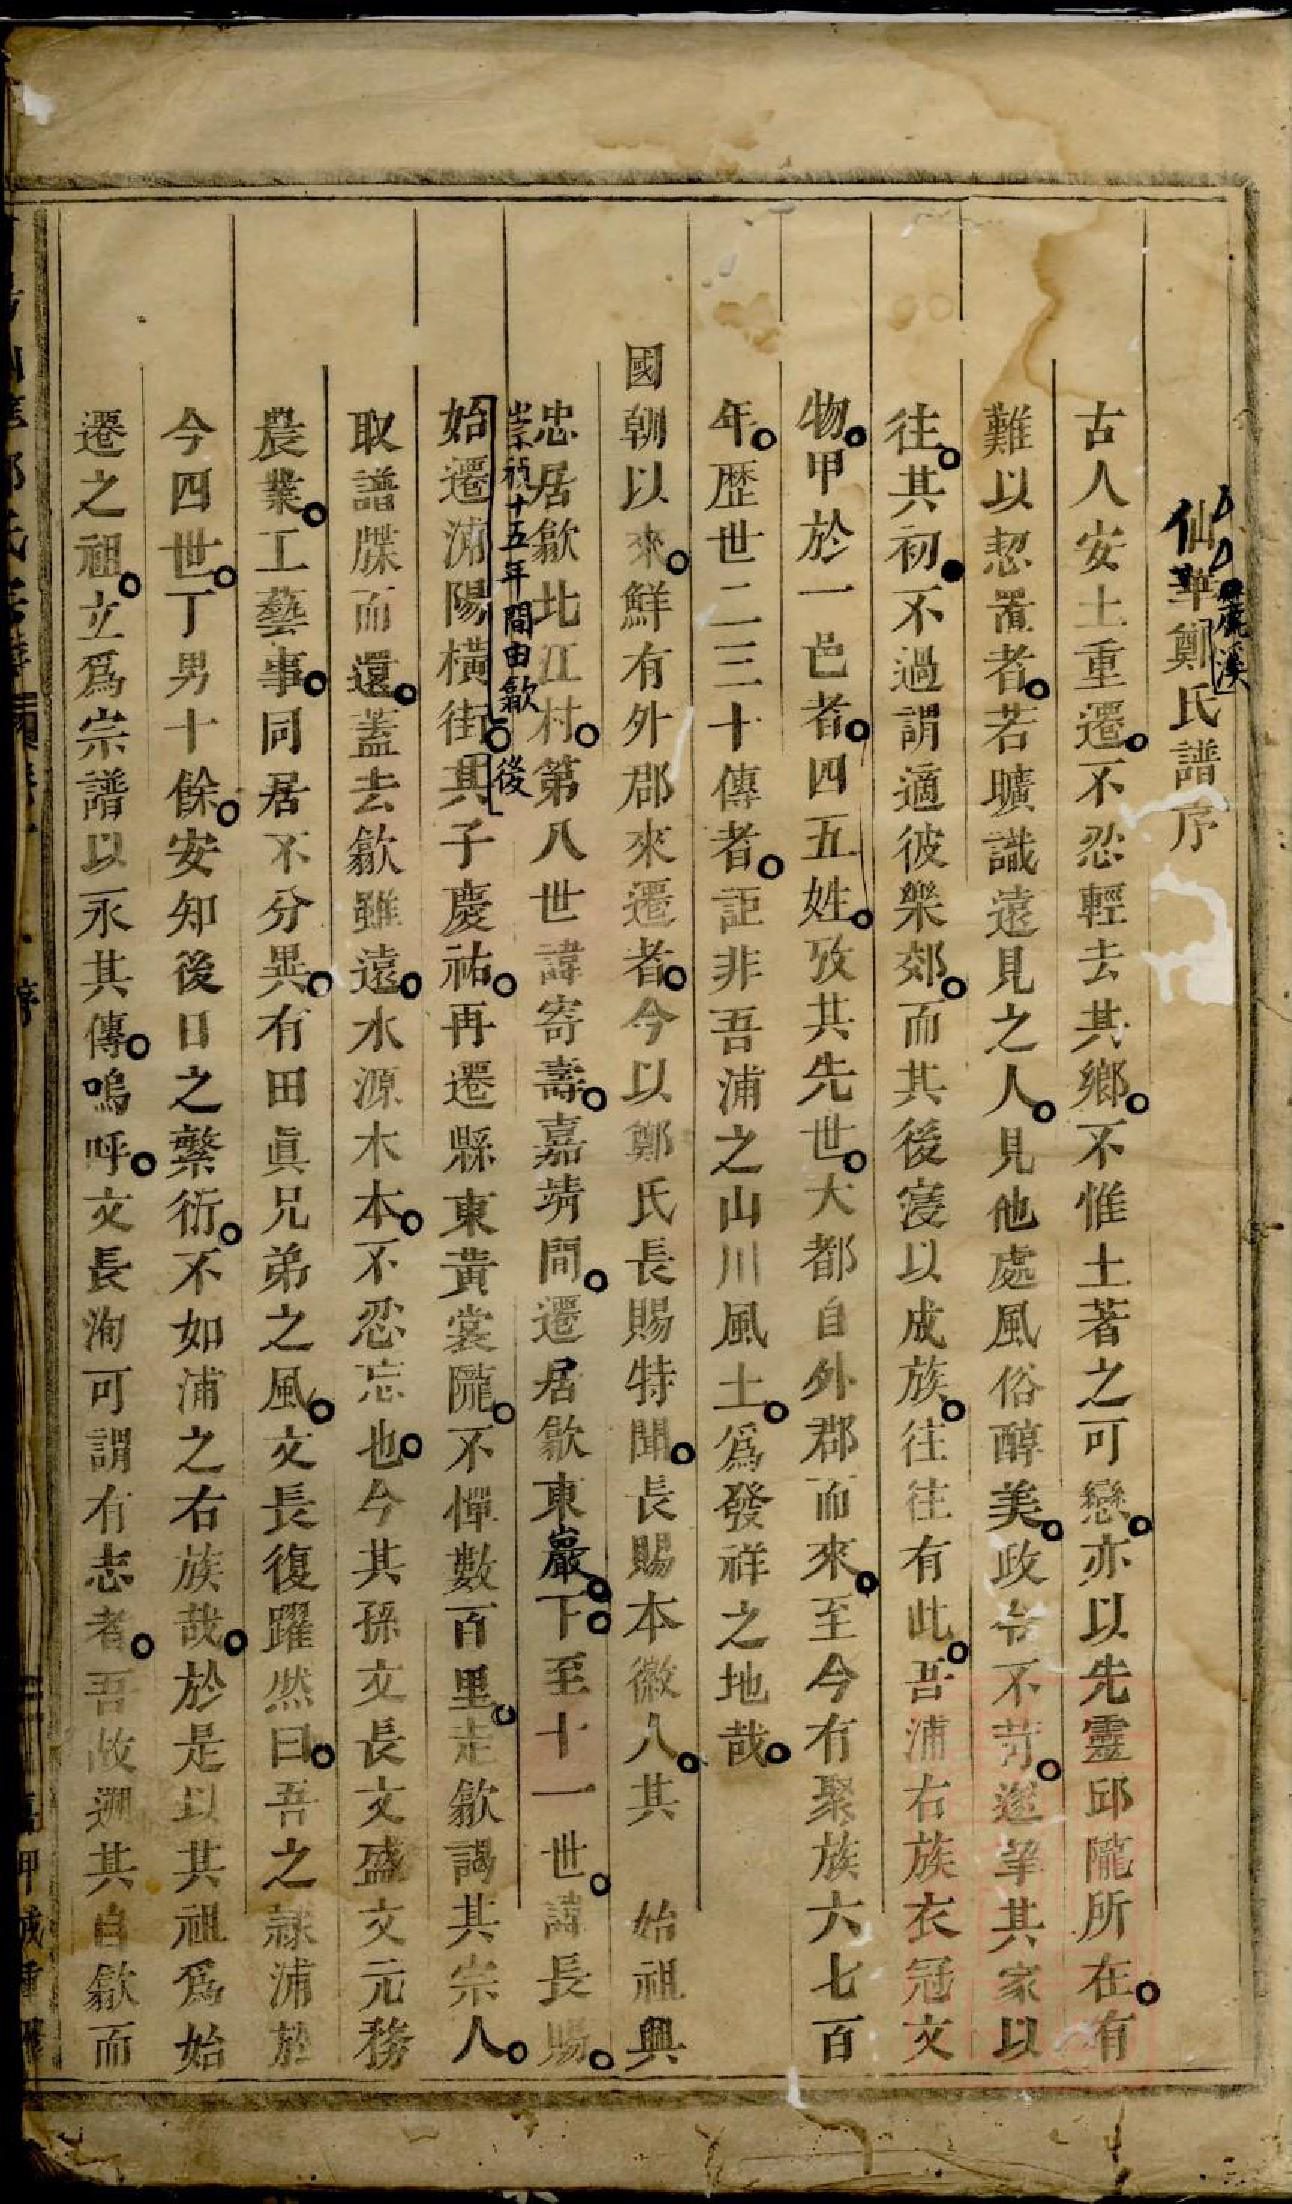 仙華鄭氏譜序
溪
古人安土重遷不忍輕去其鄉不惟土著之可戀亦以先靈邱隴所在有
難以恝置者若曠識遠見之人見他處風俗醇美政令不苛遂挈其家以
往其初不過謂適彼樂郊而其後寖以成族往往有此吾浦右族衣冠文
物甲於一邑者四五姓攷其先世大都自外郡而來至今有聚族六七百
年歷世二三十傳者詎非吾浦之山川風土爲發祥之地哉
國朝以來鮮有外郡來遷者今以鄭氏長賜特聞長賜本徽人其 始祖興
忠居歙北江村第八世諱寄壽嘉靖間遷居歙東巖下至十一世諱長賜
崇禎十五年間由歙 後
始遷浦陽橫街其子慶祐再遷縣東黃裳隴不憚數百里走歙謁其宗人
取譜牒而還蓋去歙雖遠水源木本不忍忘也今其孫文長文盛文元務
農業工藝事同居不分異有田眞兄弟之風文長復躍然曰吾之隸浦於
今四世丁男十餘安知後日之繁衍不如浦之右族哉於是以其祖爲始
遷之祖立爲宗譜以永其傳嗚呼文長洵可謂有志者吾故遡其自歙而